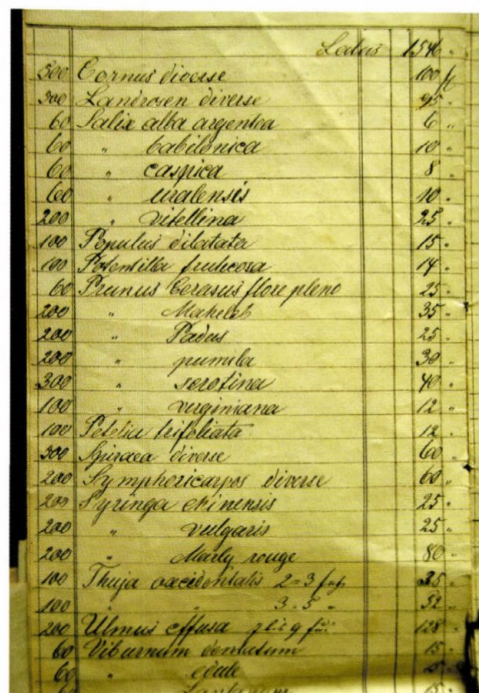 Latus 1546 "
500 Cornus diverse 100 fl
300 diverse 95 "
60 Salix alba argentea 6 "
60 " babilonica 10 "
60 " caspica 8 "
60 " uralensis 10 "
200 " vitellina 25 "
100 Populus dilatata 15 "
100 Potentilla fruticosa 14 "
60 Prunus Cerasus flore pleno 25 "
200 " Mahaleb 35 "
200 " Padus 25 "
200 " pumila 30 "
300 " serotina 40 "
100 " virginiana 12 "
100 Ptelia trifoliata 12 "
300 Spiraea diverse 60 "
200 Symphoricarpos diverse 60 "
200 Syringa chinensis 25 "
200 " vulgaris 25 "
200 " Marly rouge 80 "
100 Thuja occidentalis 2-3 35 "
100 " " 3-5 " 52 "
200 Ulmus effusa 128 "
60 Viburnum dentatum 15 "
60 " edule 15 "
Lantanum 15 "